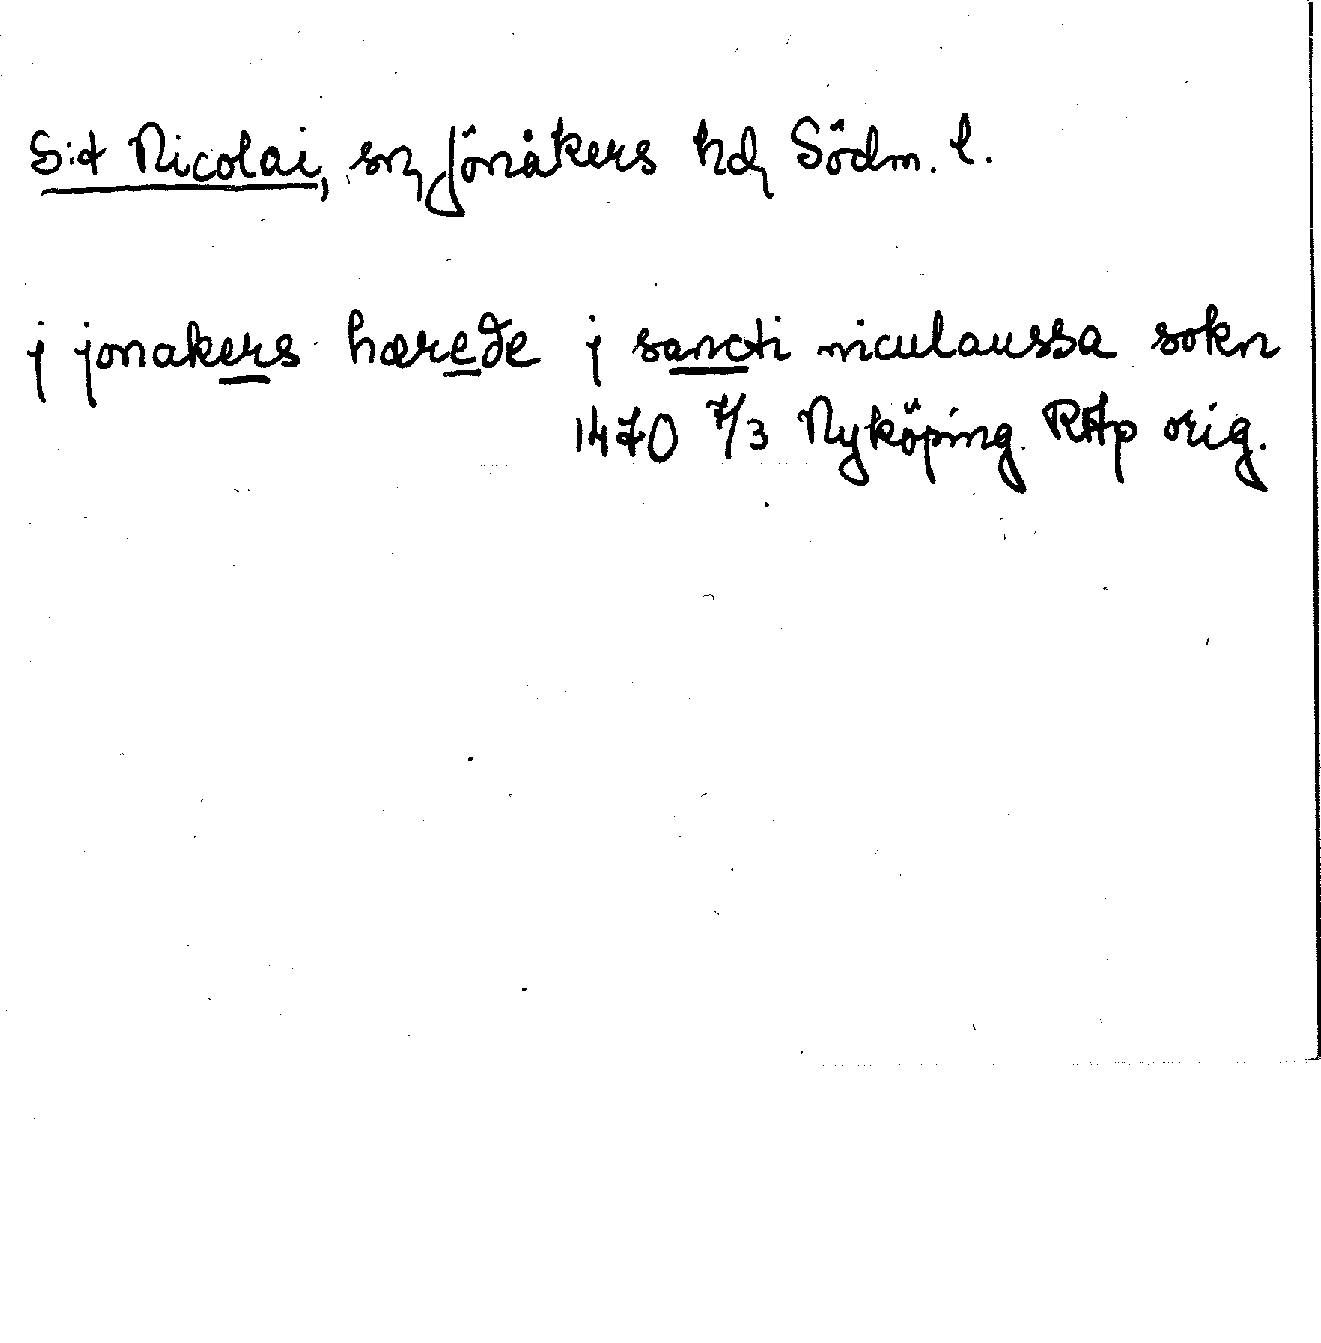 S:t Nicolai, sn, Jönåkers hd, Södm. l.
j jonakers hærede j sancti niculaussa sokn
1470 7/3 Nyköping. RAp orig.